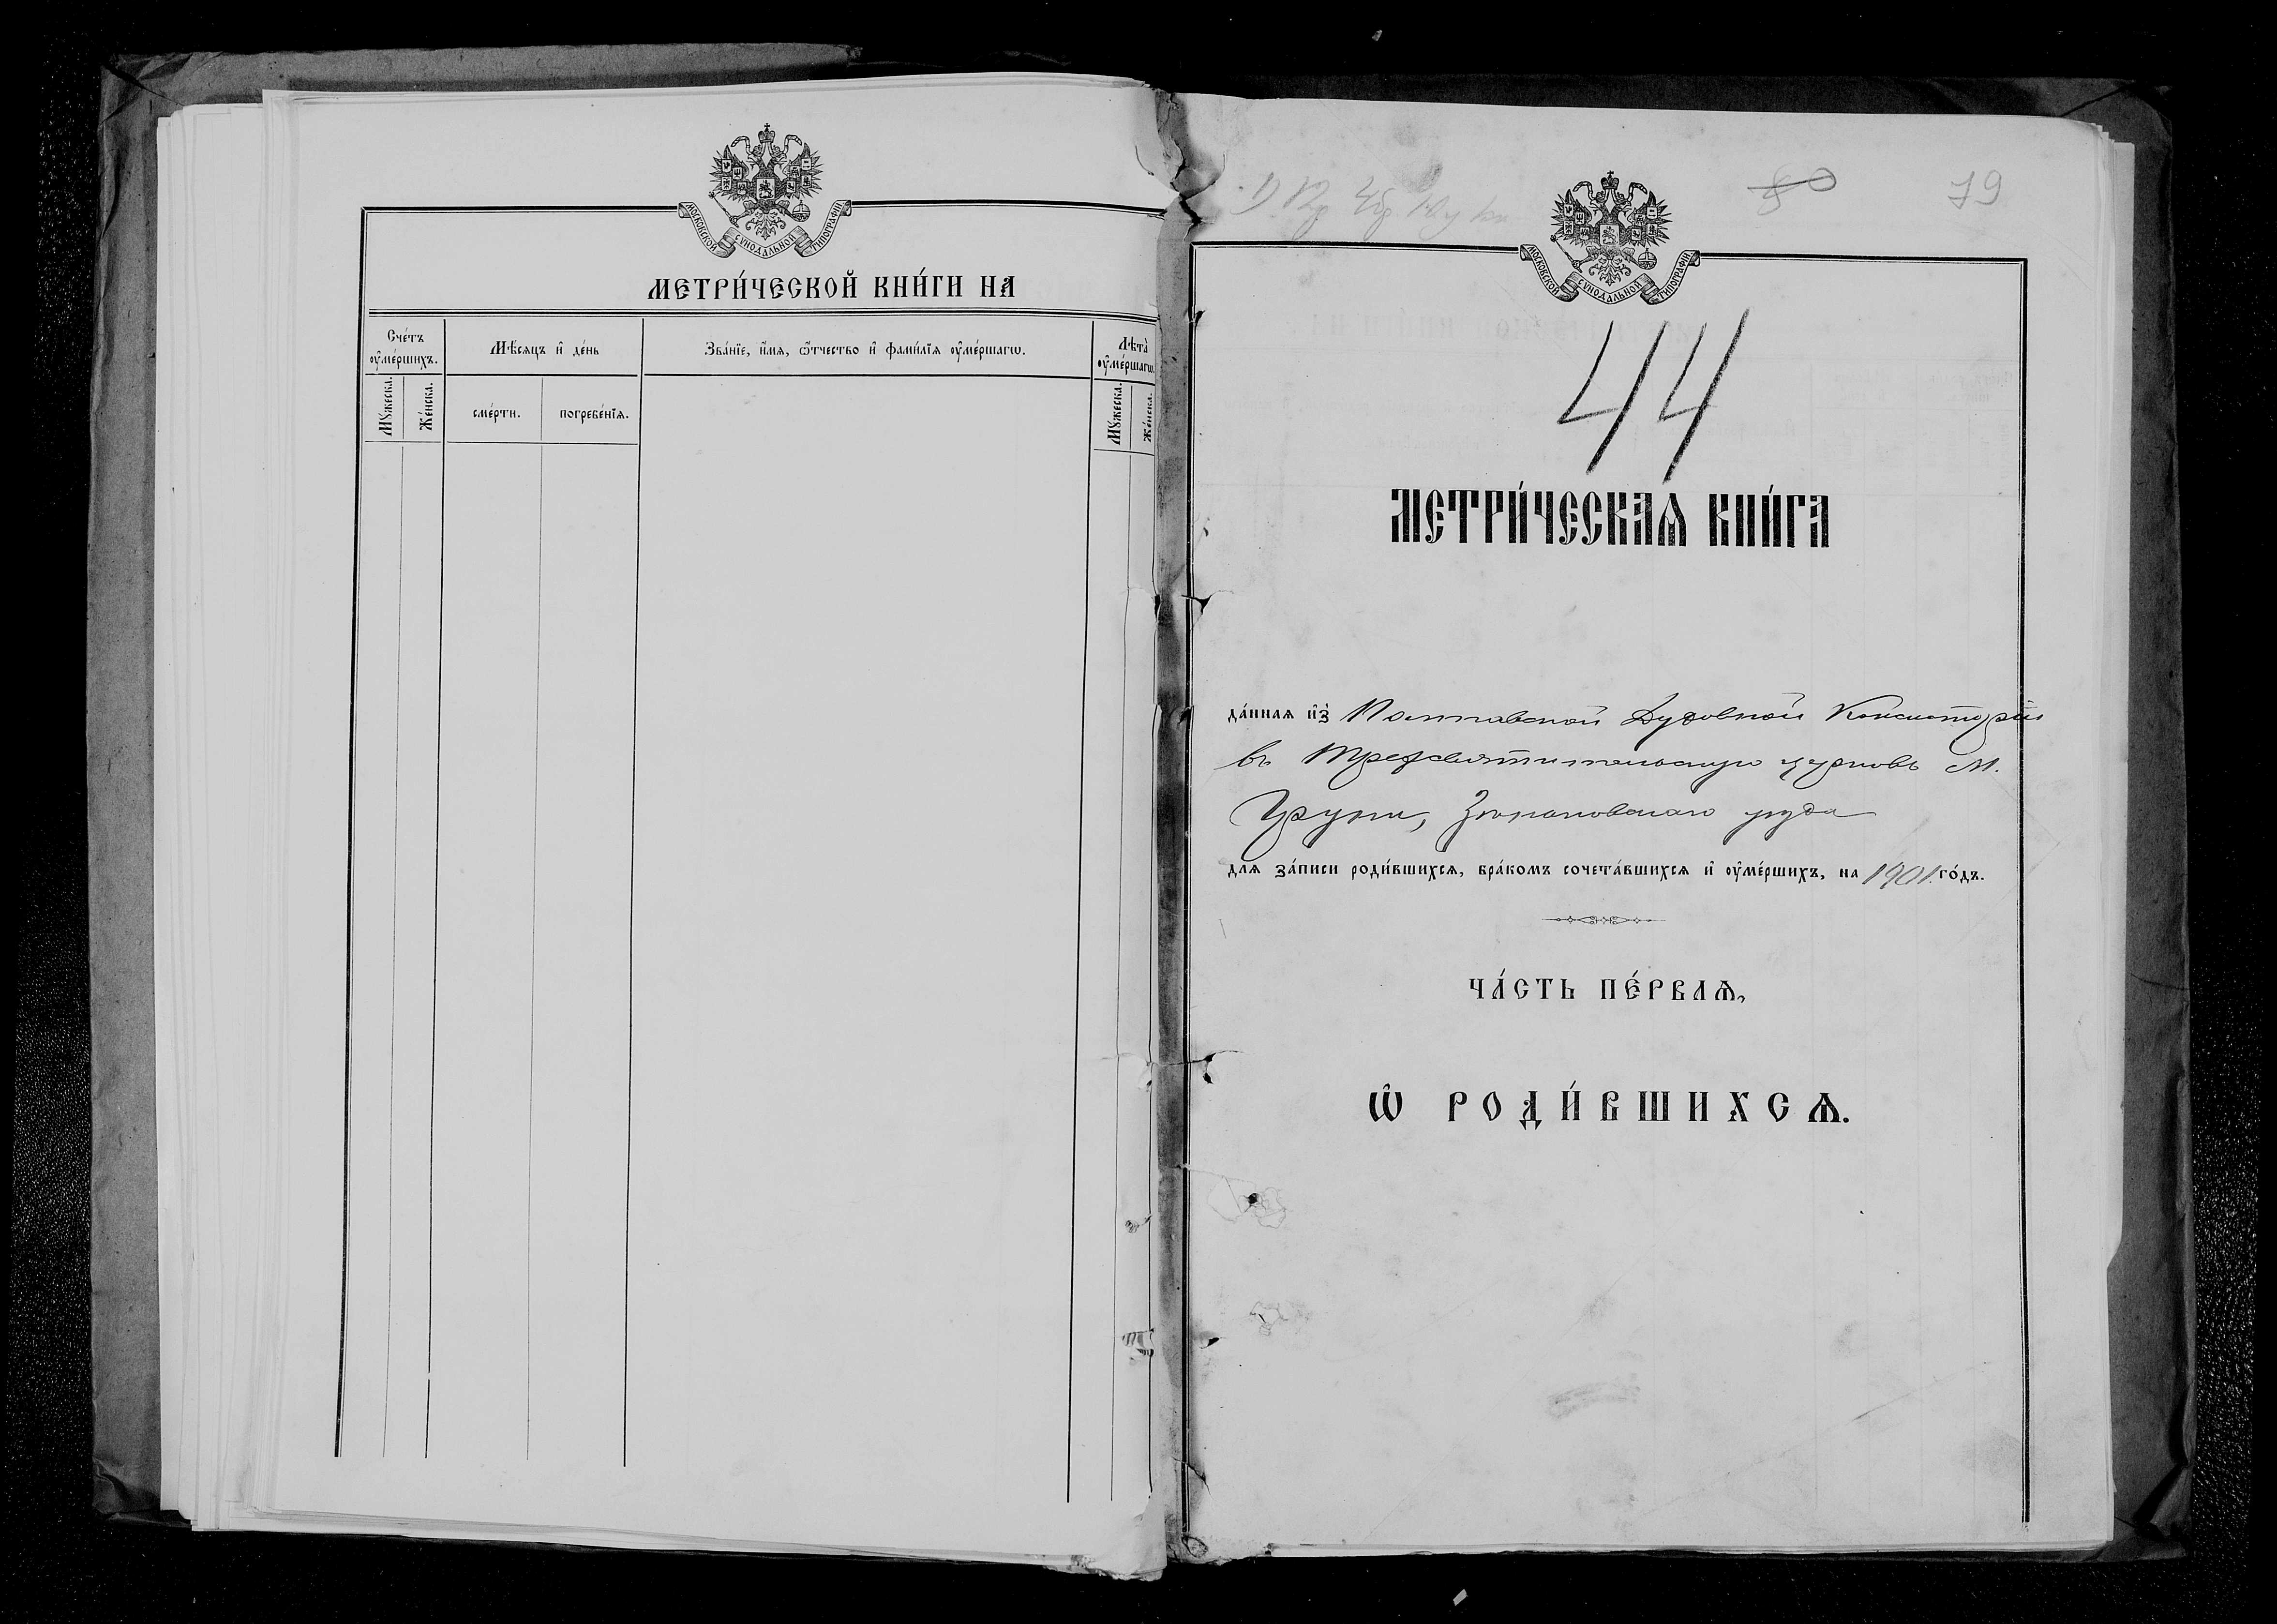 МОСКОВСКОЙ СѴНОДАЛЬНОЙ ТИПОГРАФІИ
МЕТРИ́ЧЕСКОЙ КНИ́ГИ НА
Сче́тъ ᲂу҆ме́ршихъ.
Мѣ́сяцъ и҆ де́нь
Зва́нїе, и҆́мѧ, ѻ҆́тчество и҆ фами́лїѧ ᲂу҆ме́ршагѡ.
Лѣ́та ᲂу҆ме́ршагѡ.
Мꙋ́жеска.
Же́нска.
сме́рти.
погребе́нїѧ.
Мꙋ́жеска.
Же́нска.
80
79
МОСКОВСКОЙ СѴНОДАЛЬНОЙ ТИПОГРАФІИ
44
МЕТРИ́ЧЕСКАѦ КНИ́ГА
да́ннаѧ и҆з̾ Полтавской Духовной Консисторіи
въ Трехсвятительскую церковь м.
Груни, Зѣньковскаго уѣзда
длѧ за́писи роди́вшихсѧ, бра́комъ сочета́вшихсѧ и҆ ᲂу҆ме́ршихъ, на 1901 го́дъ.
ЧА́СТЬ ПЕ́РВАѦ,
Ѡ҆ РОДИ́ВШИХСѦ.